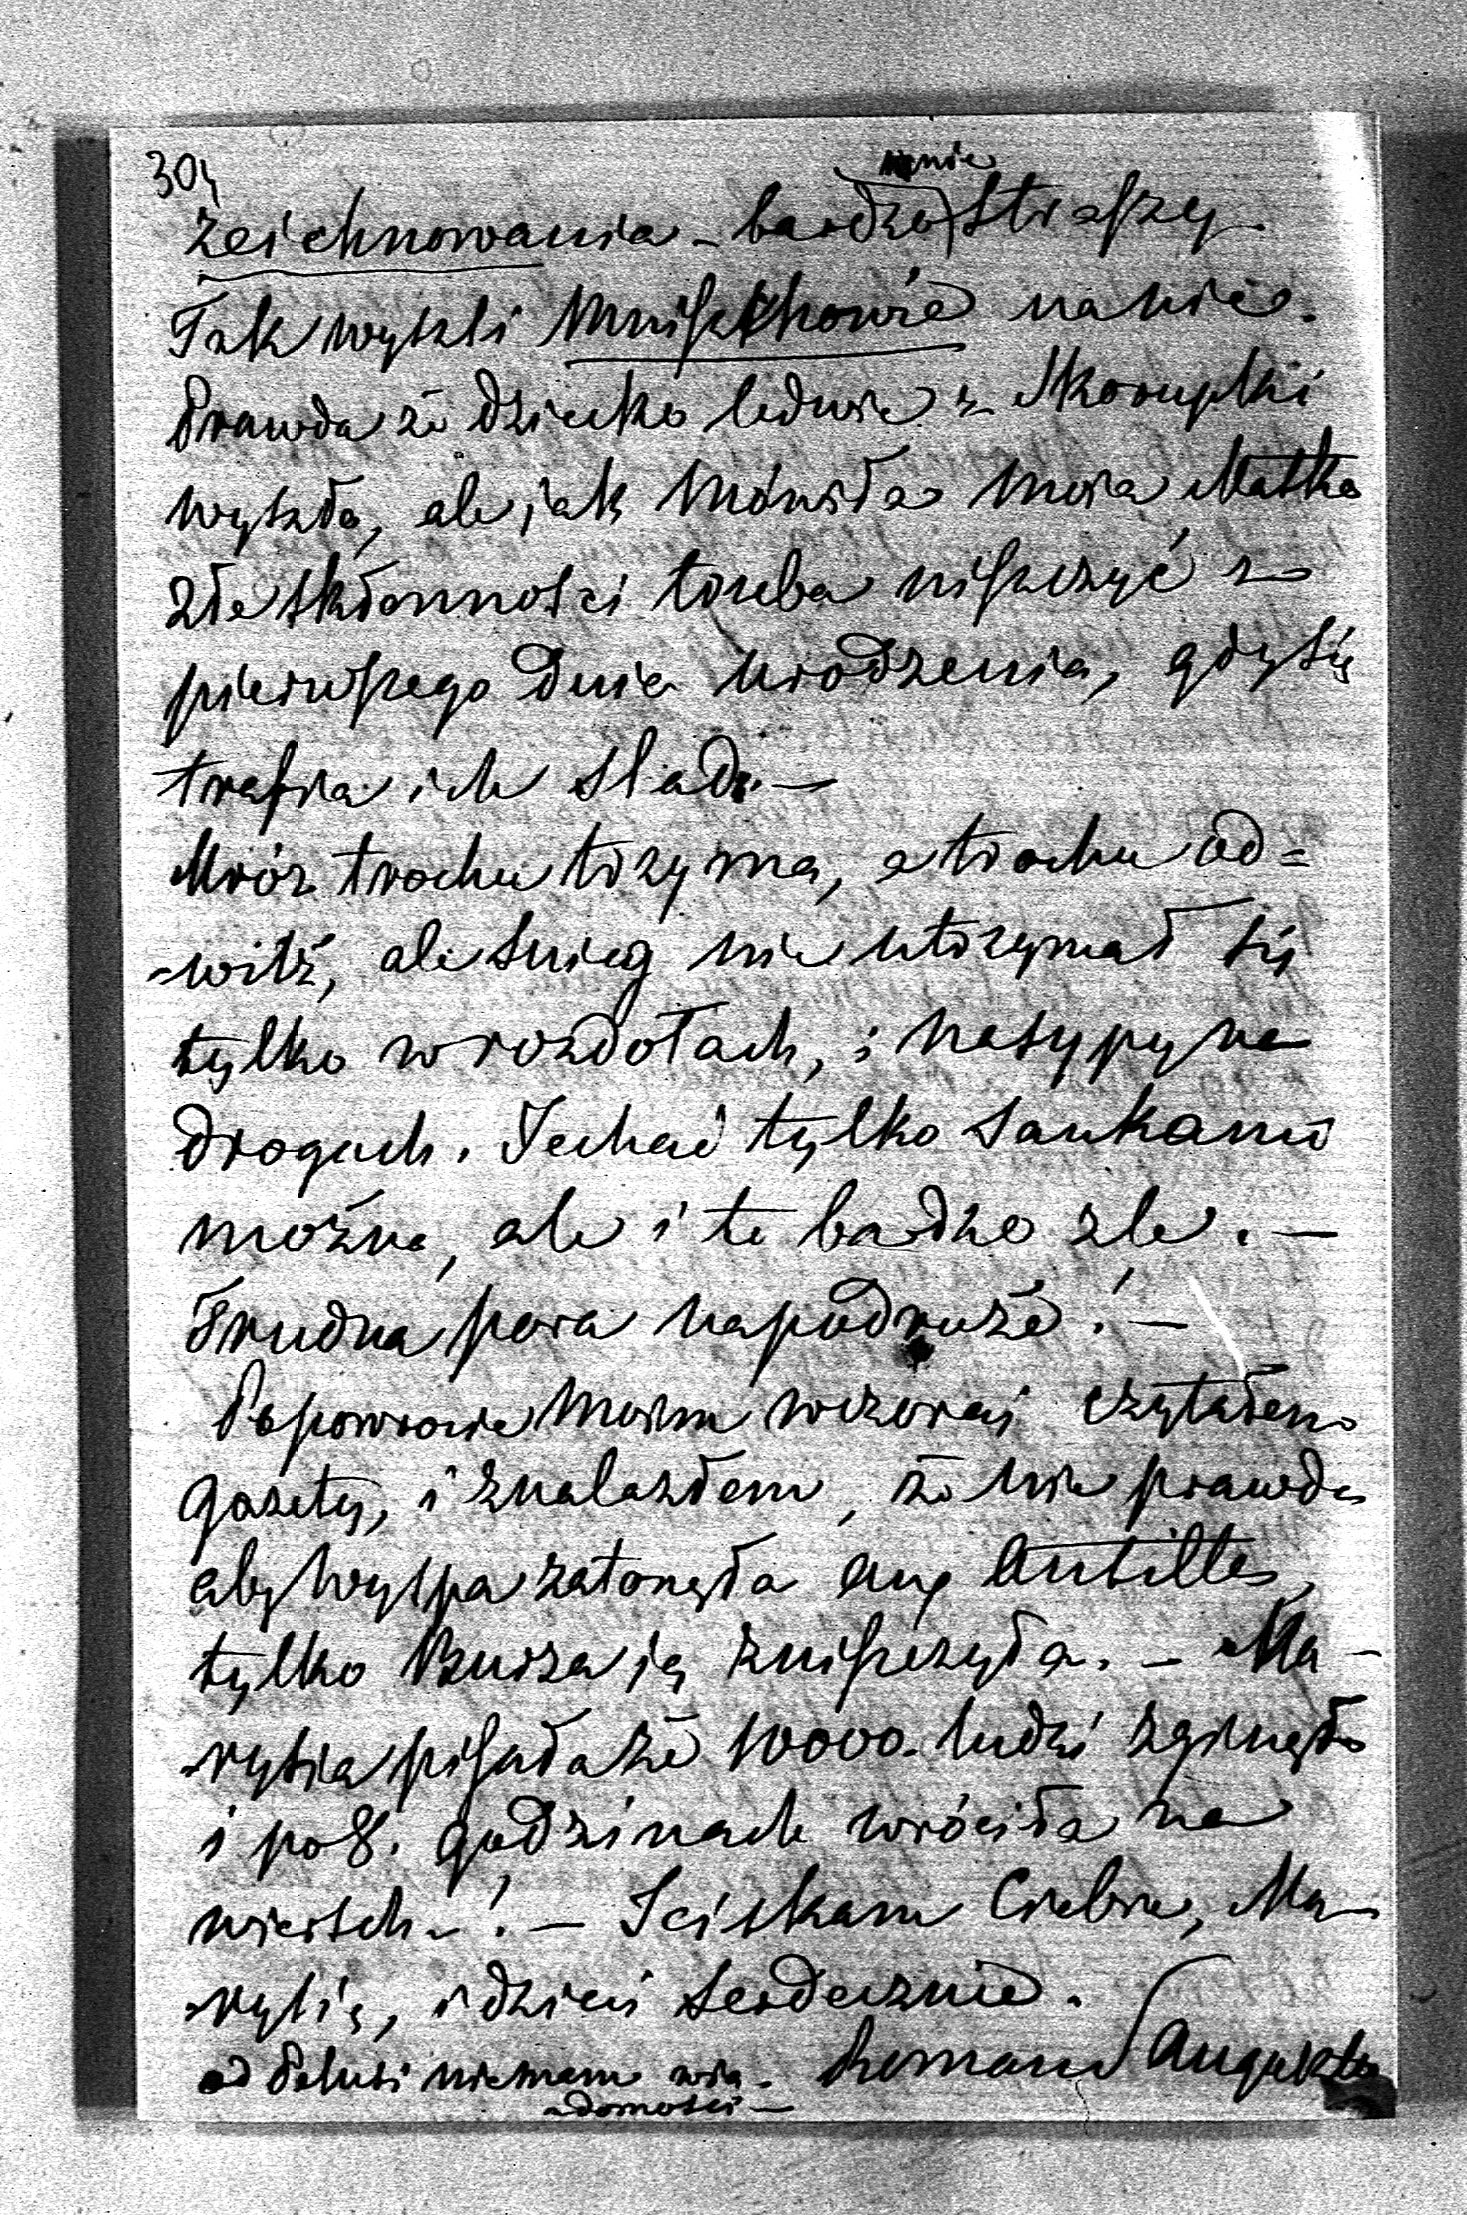 304
mnie
zeichnowania - bardzo straszy.
Tak wyszli Mniszkhowie na nic.
Prawda że dziecko ledwie z skorupki
wyszło, ale jak mówiła moia Matka
złe skłonności trzeba niszczyć z
pierwszego dnia urodzenia, gdy się
trafia ich slad. —
Mróz trochu trzyma, a trochu od=
-wilż, ale snieg nie utrzymał się
tylko w rozdołach, i nasypy na
drogach. Jechać tylko sankami
możne, ale i to bardzo zle. —
Trudna pora na podruże! —
Po powrocie moim wczoraj czytałem
gazety, i znalazłem, że nie prawda
aby wyspa zatonęła Antilles,
tylko Burza ją zniszczyła. - Ma-
-rysia pisała że 10000. ludzi zginęło
i po 8. godzinach wróciła na
wierzch! — Sciskam Ciebie, Ma-
-rysię, i dzieci serdecznie.
od Pelusi niemam wia-
-domości —
Roman August